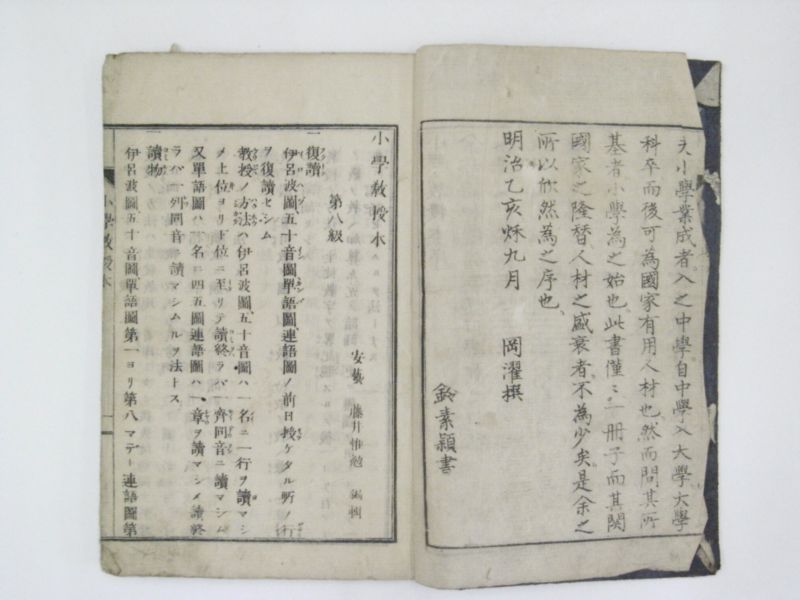 夫小學業成者入之中學自中學入大學大學
科卒而後可為國家有用人材也然而問其所
基者小學為之始也此書僅〻一冊子而其関
國家之隆替人材之盛衰者不為少矣是余之
所以欣然為之序也
明治乙亥穐九月 岡濯撰
鈴素穎書
小學教授本
安藝 藤井惟勉 編輯
第八級
一復讀
伊呂波圖五十音圖單語圖連語圖ノ前日授ケタル所ノ行
ヲ復讀セシム
教授ノ方法ハ伊呂波圖五十音圖ハ一名ニ一行ヲ讀マシ
メ上位ヨリ下位ニ至リテ讀終ラバ一齊同音ニ讀マシム
又單語圖ハ一名ニ四五圖連語圖ハ一章ヲ讀マシメ讀終
ラバ一列同音ニ讀マシムルヲ法トス
一讀物
伊呂波圖五十音圖單語圖第一ヨリ第八マデ連語圖第
小學教授本
一